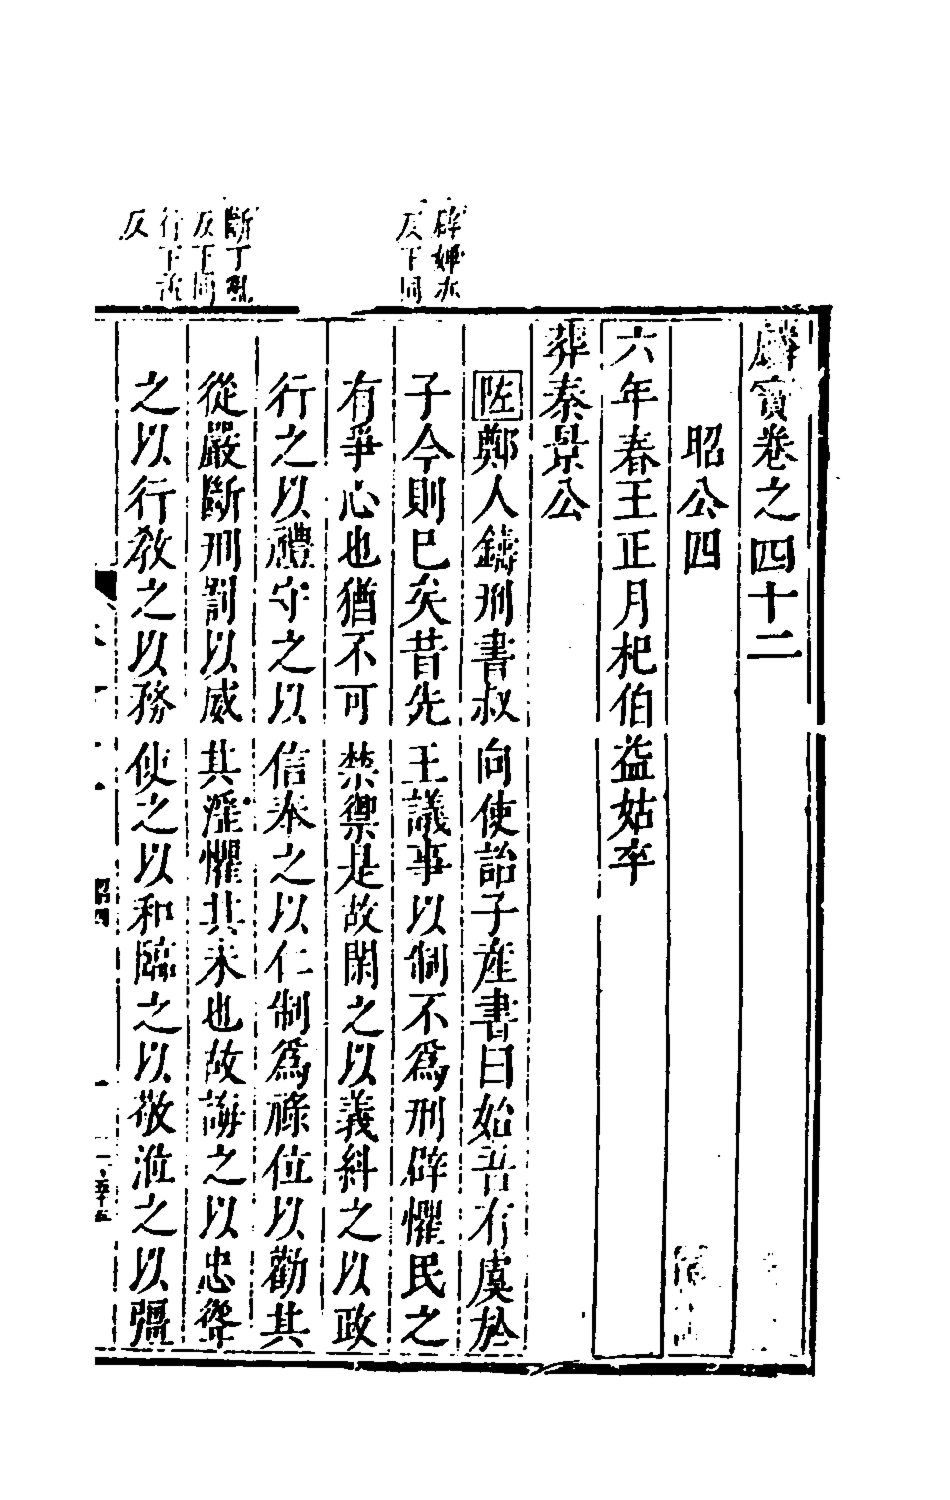 麟寶卷之四十二
昭公四
六年春王正月杞伯益姑卒
葬秦景公
辟婢亦
反下同
左鄭人鑄刑書叔向使詒子產書曰始吾有虞於
子今則已矣昔先王議事以制不為刑辟懼民之
有爭心也猶不可禁禦是故閑之以義糾之以政
行之以禮守之以信奉之以仁制為祿位以勸其
斷丁亂
反下同
行下孟
反
從嚴斷刑罰以威其淫懼其未也故誨之以忠聳
之以行教之以務使之以和臨之以敬涖之以彊
昭四